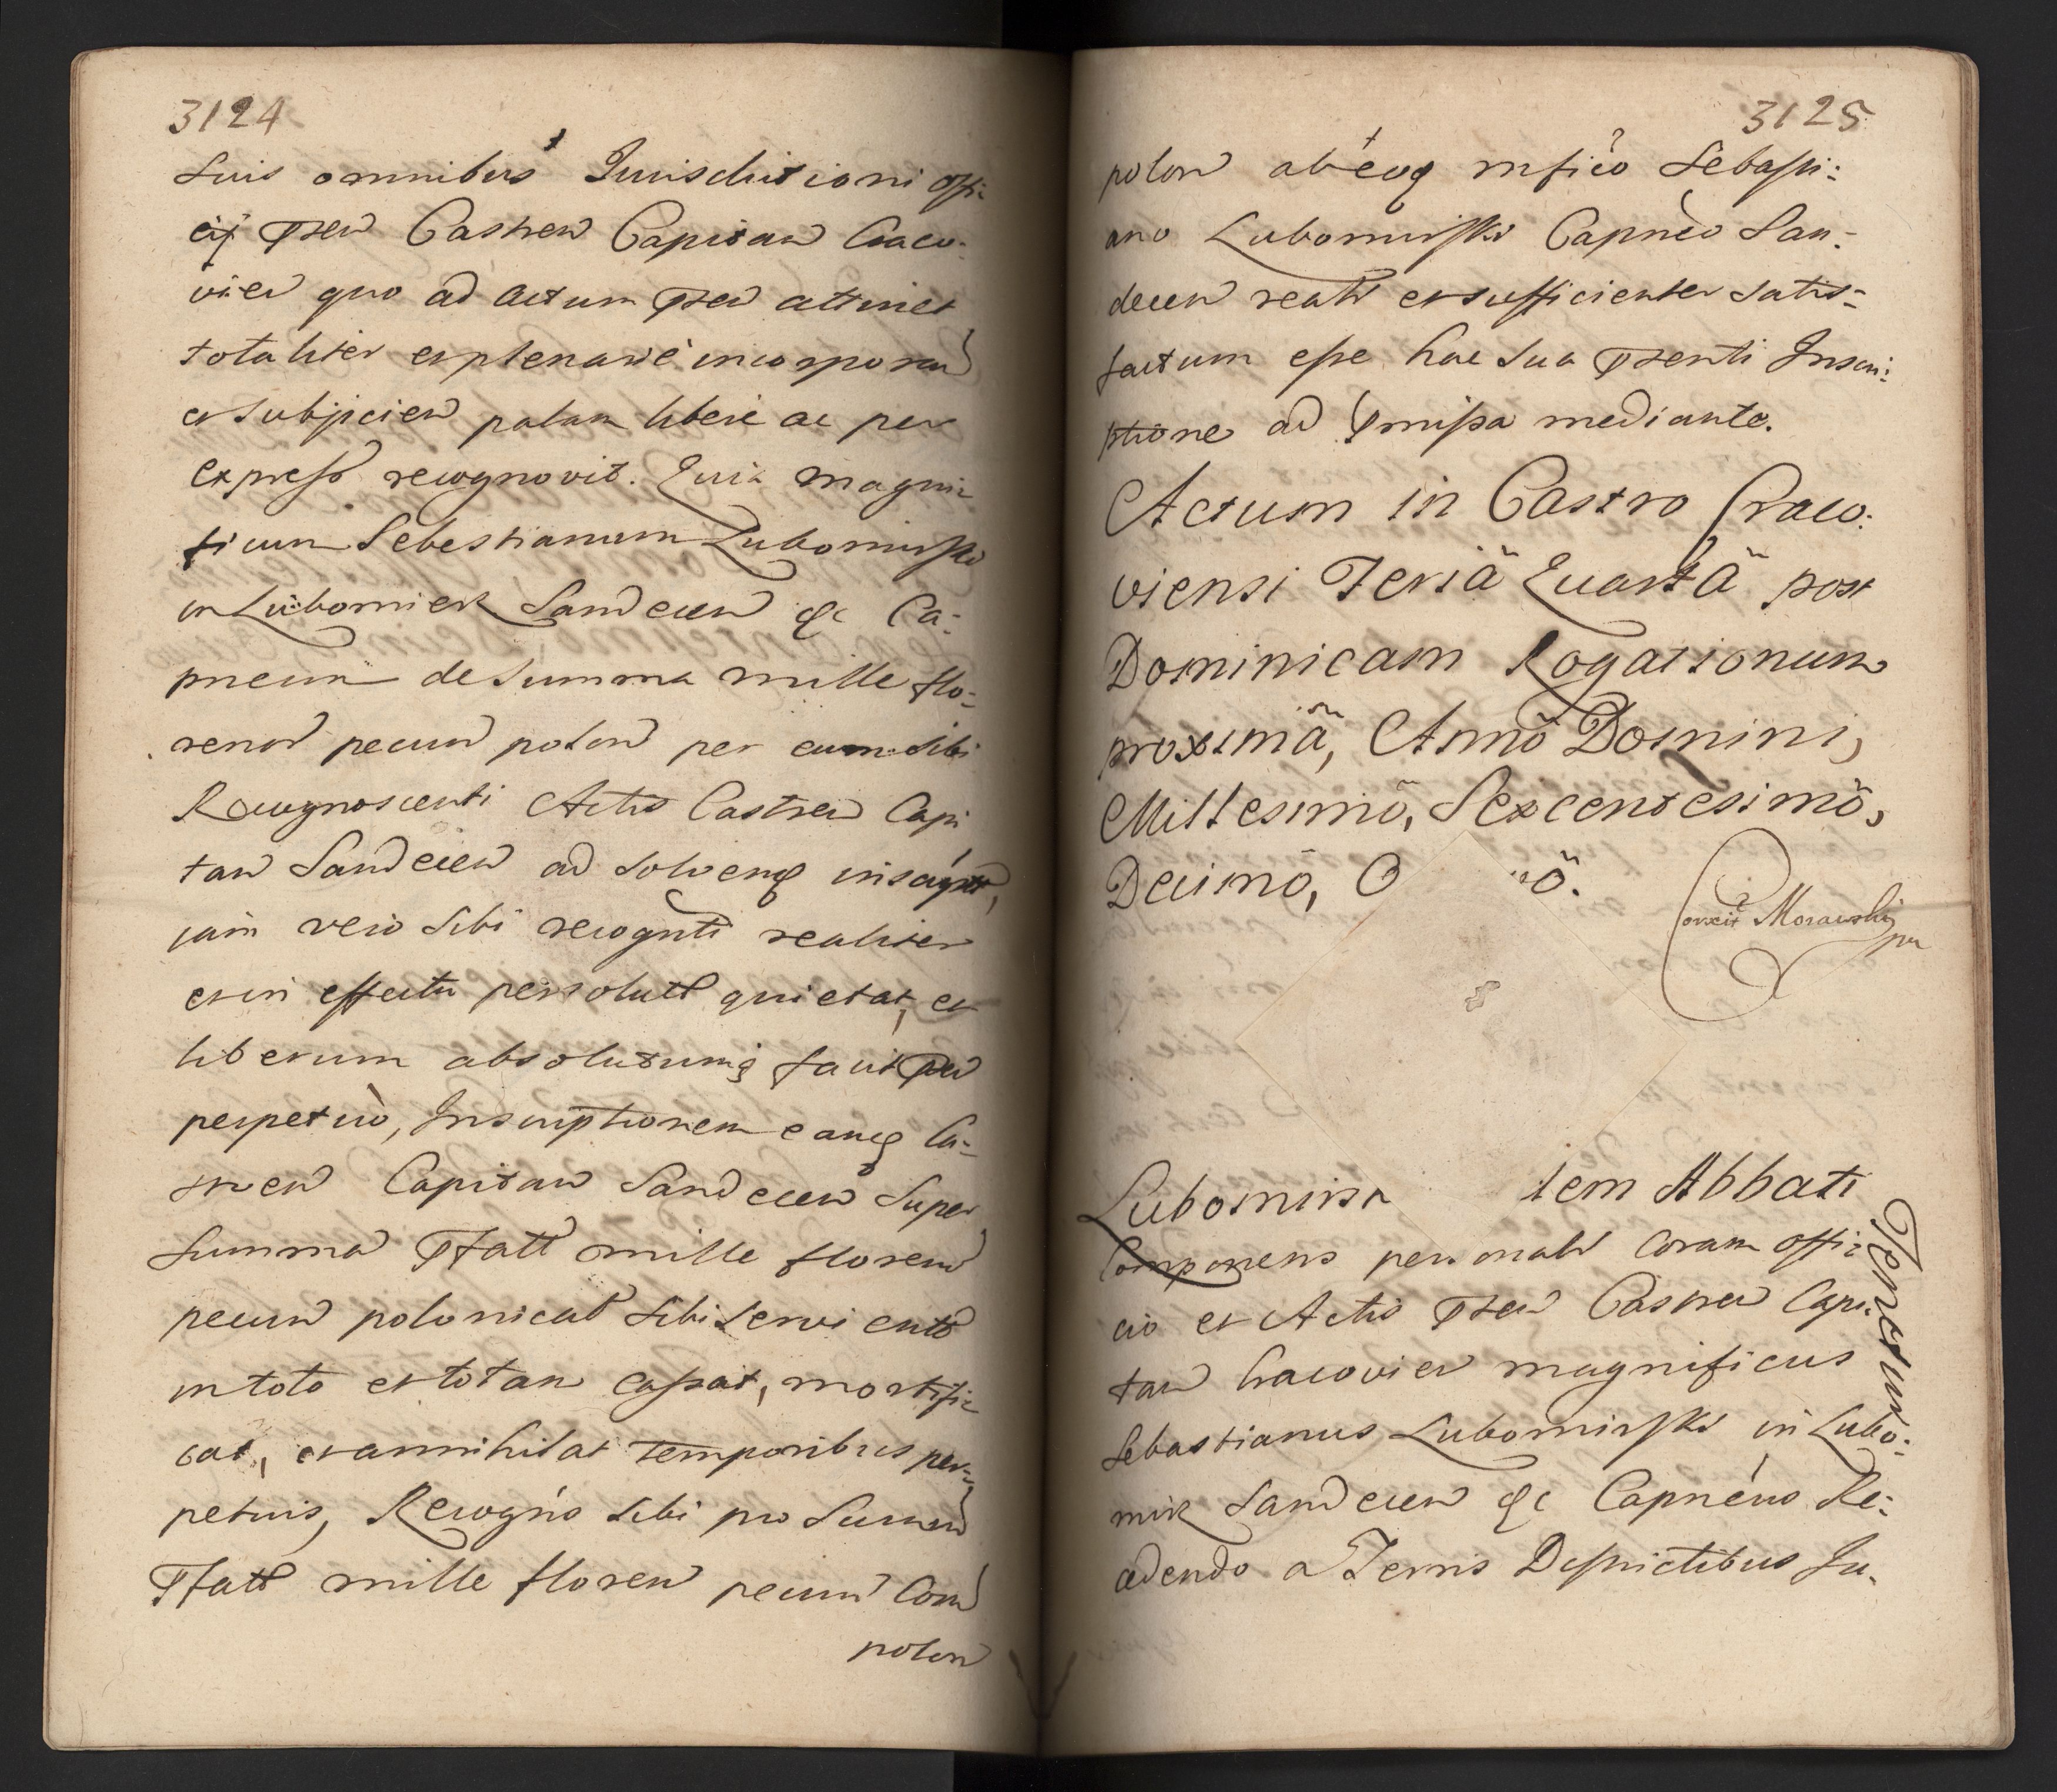 3124
suis omnibus Jurisdictioni offi:
cij Pren Castren Capitan Craco:
vien quo ad actum Pren attinet
totaliter et plenarie incorporan
et subijcien palam libere ac per
express recognovit. Quia magni:
ficum Sebestianum Lubomirski
in Lubomierz Sandecen &c Ca:
pneum de Summa mille flo:
renor pecun polon per eum sibi
Recognoscenti Actis Castren Capi
tan Sandecen ad solvend inscript,
iam vero sibi recognti realiter
et in effectu persolut quietat, et
liberum absolutumq facit
perpetuo, Inscriptionem eamq Ca:
stren Capitan Sandecen super
Summa Pfatt mille floren
pecun polonical sibi servient
in toto et totan cassat, mortifi:
cat, et annihilat temporibus per:
petuis, Recogns sibi pro Summ
Pfatt mille floren pecun Com
polon
3125
polon ab eoq mfico Sebasti:
ano Lubomirski Capneo San:
decen realr et sufficienter satis:
factum esse hac sua Psenti Inscri:
ptione ad Pmissa mediante.
Actum in Castro Craco:
viensi Feriã Quartã post
Dominicam Rogationum
proximã, Anno Domini,
Millesimõ, Sexcentesimõ,
Decimõ, O õ.
Correxit Morawski
mp
Lubomirs tem Abbati
Tenetur
Componens personalr Coram offi:
cio et Actis Pren Castren Capi:
tan Cracovien magnificus
Sebastianus Lubomirski in Lubo:
mir Sandecen &c Capneus Re:
cedendo a Terris Districtibus Ju: